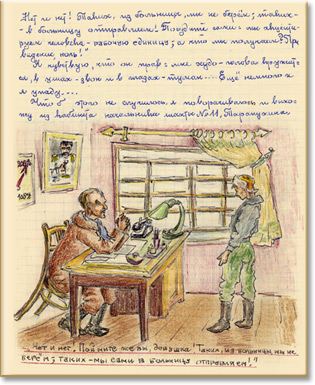 Нет и нет! Таких, из больницы, мы не берём; таких -
- в больницу отправляем! Посудите сами: мы авансируем
человека - рабочую единицу; а что мы получаем? Про-
видение, ноль!"
Я чувствую, что он прав: мне худо - голова кружится
в, в ушах - звон и в глазах - туман.... Ещё немного и
я упаду....
Чтоб этого не случилось, я поворачиваюсь и выхо-
жу из кабинета начальника шахты №11, Тарапушка
"Нет и нет! Поймите же вы, девушка! Таких, из больницы, мы не
берём; таких - мы сами в больницу отправляем!"